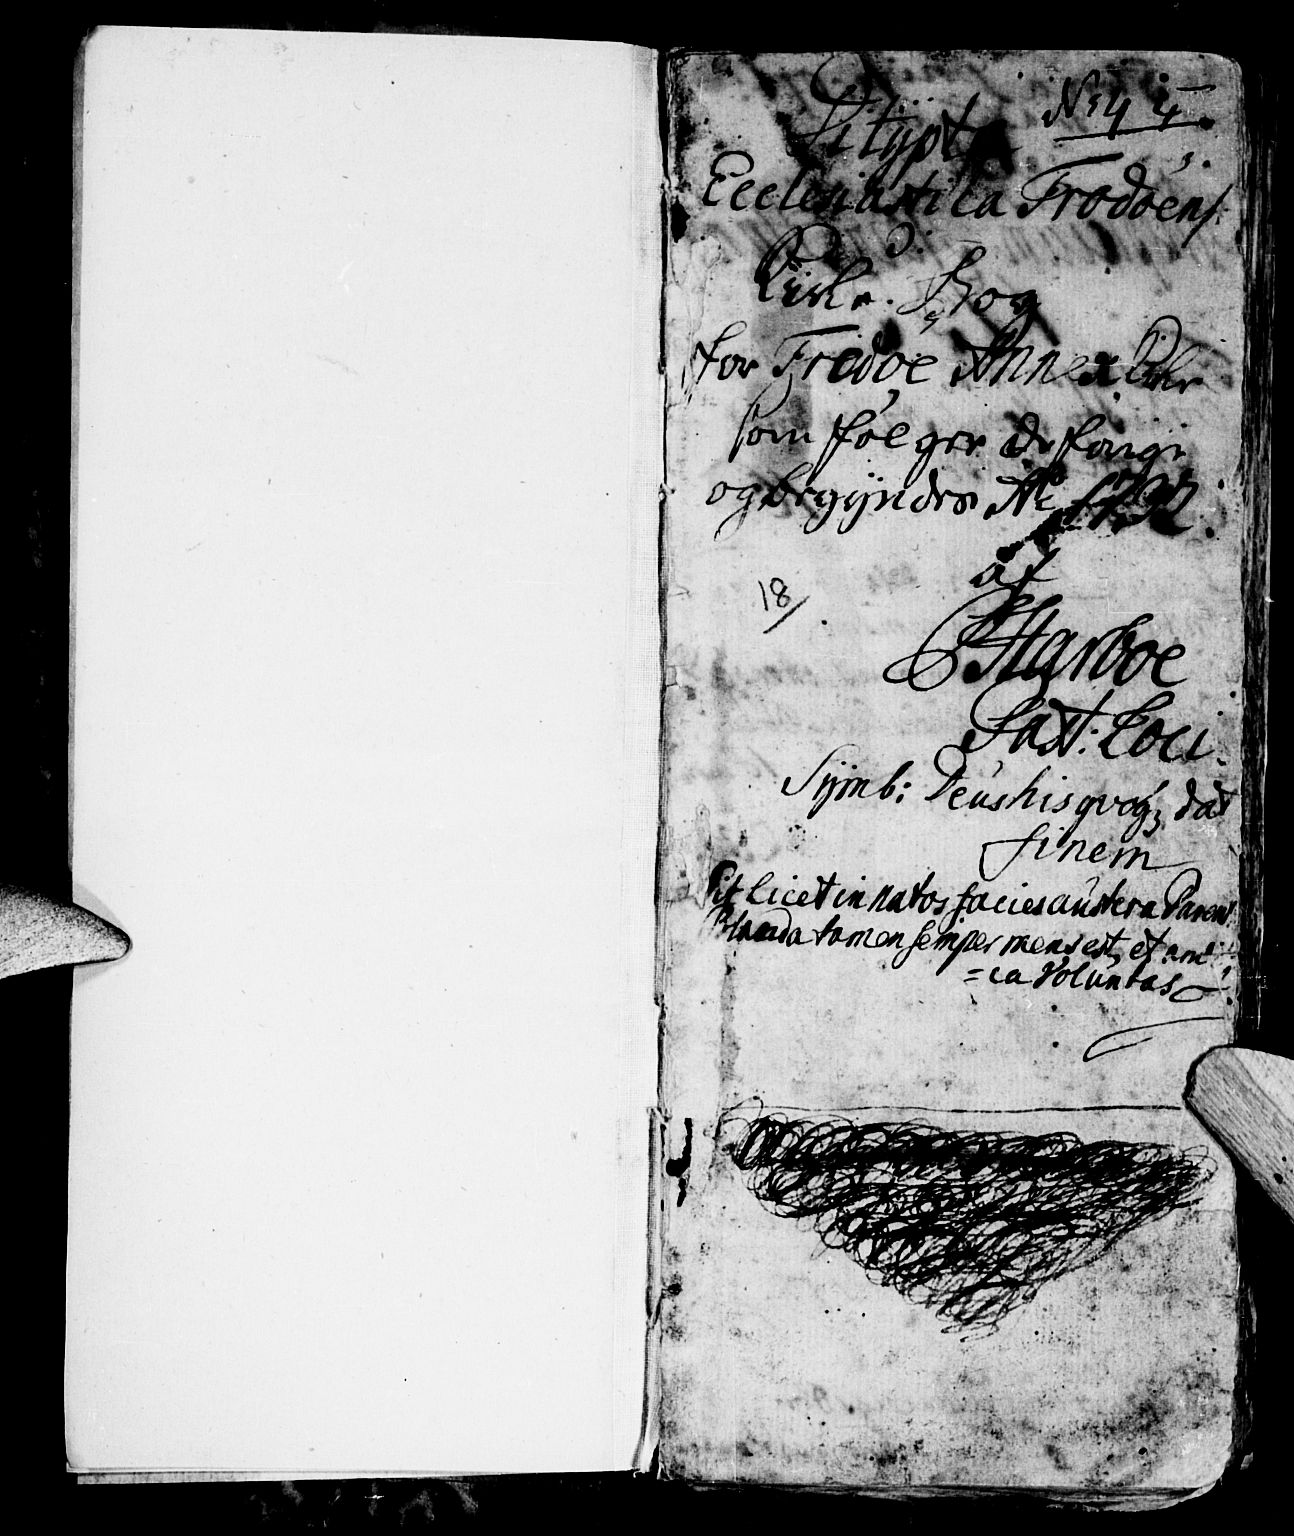 No 4
Ecclesiastica Fredöens
ↄ:
Kirke. Bog
for Fredøe Annex Kirke
som følger
og begÿndes Ao 1732.
af
18
Harboe
Past: Loci.
Sÿmb: Deus his qvoq3 dat
finem
Sit licet in natos facies austera Parent
Blanda tamen semper mens est, et ami
=ca Voluntas